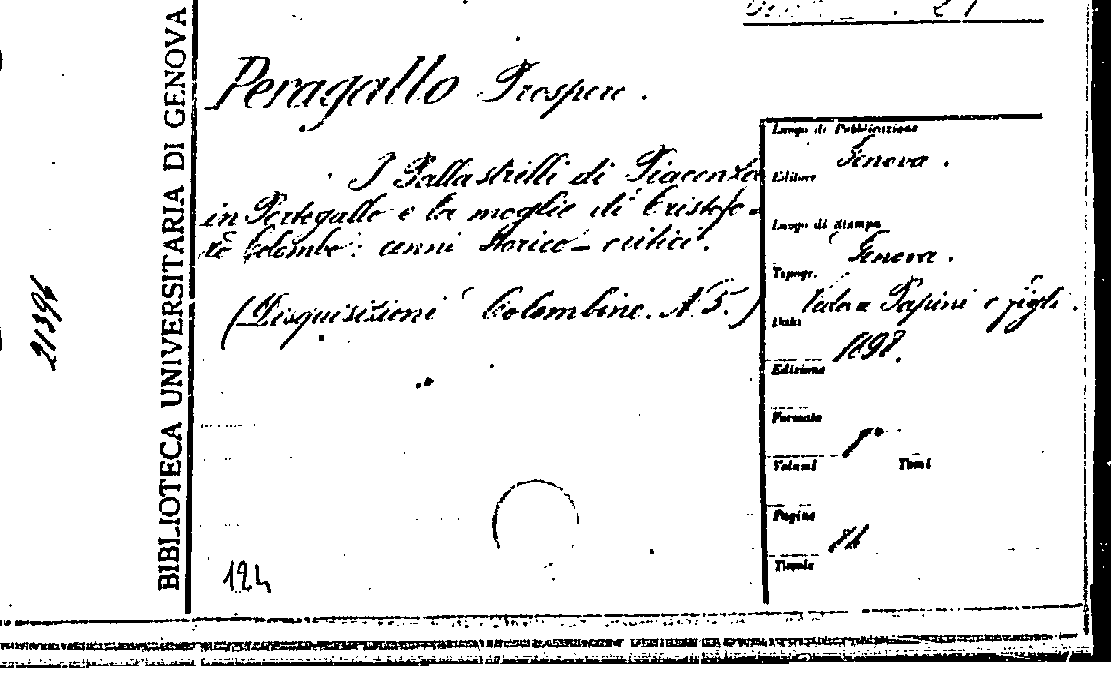 BIBLIOTECA UNIVERSITARIA DI GENOVA
21394
Peragallo Prospero.
I Pallastrelli di Piacenza
in Portogallo e la moglie di Cristofo-
ro Colombo: cenni storico-critici.
(Disquisizioni Colombine. N. 5.)
124
Luogo di Pubblicazione
Genova.
Editore
Luogo di Stampa
Genova.
Topogr.
Vedova Papini e figli.
Data
1898.
Edizione
Formato
8°
Volumi Tomi
Pagine
Tavole